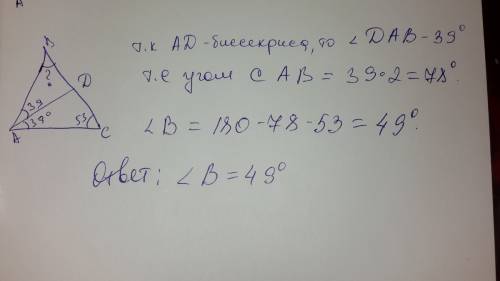 A
B
?
D
39
39°
53
A
C
т.к AD - биссектриса, то ∠DAB - 39°
т.е угол CAB = 39·2 = 78°.
∠B = 180 - 78 - 53 = 49°.
Ответ: ∠B = 49°